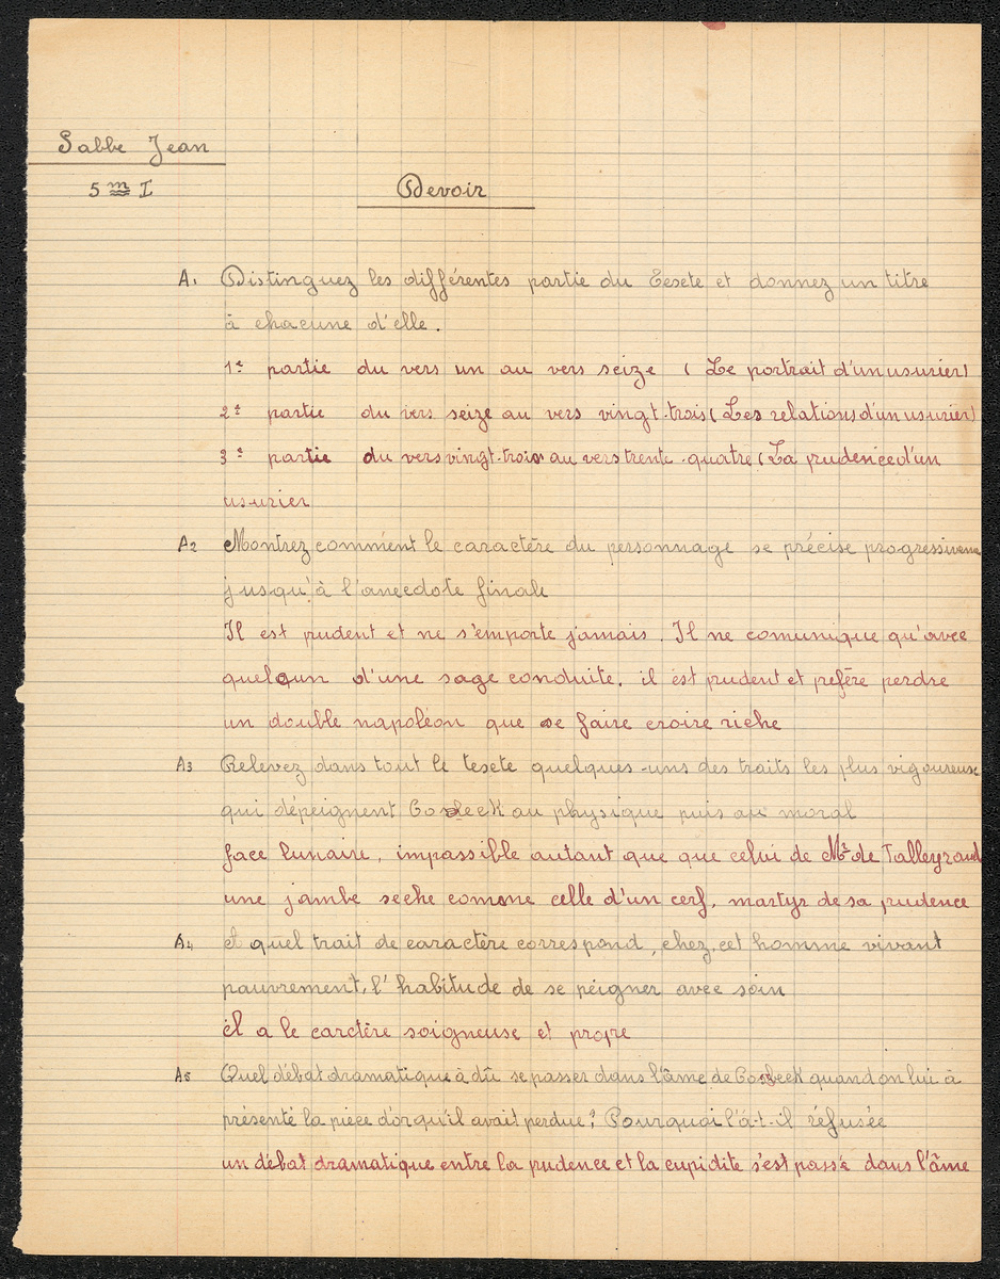 Sabbe Jean
5me I
Devoir
A1 Distinguez les différentes partie du texte et donnez un titre
à chacune d'elle.
1e partie du vers un au vers seize (Le portrait d'un usurier)
2e partie du vers seize au vers vingt-trois (Les relations d'un usurier)
3e partie du vers vingt-trois au vers trente-quatre (La prudence d'un
usurier
A2 Montrez comment le caractère du personnage se précise progressiveme
jusqu'à l'anecdote finale
Il est prudent et ne s'emporte jamais. Il ne comunique qu'avec
quelqun d'une sage conduite. il est prudent et prefère perdre
un double napoléon que se faire croire riche
A3 Relevez dans tout le texte quelques-uns des traits les plus vigoureuse
qui dépeignent Gobseck au physique puis au moral
face lunaire, impassible autant que que celui de Mr de Talleyrand
une jambe seche comme celle d'un cerf, martyr de sa prudence
A4 à quel trait de caractère correspond, chez cet homme vivant
pauvrement, l'habitude de se peigner avec soin
il a le carctère soigneuse et propre
A5 Quel débat dramatique à dû se passer dans l'âme de Gobseck quand on lui à
présenté la pièce d'or qu'il avait perdue? Pourquoi l'a-t-il réfusée
un débat dramatique entre la prudence et la cupidite s'est passé dans l'âme